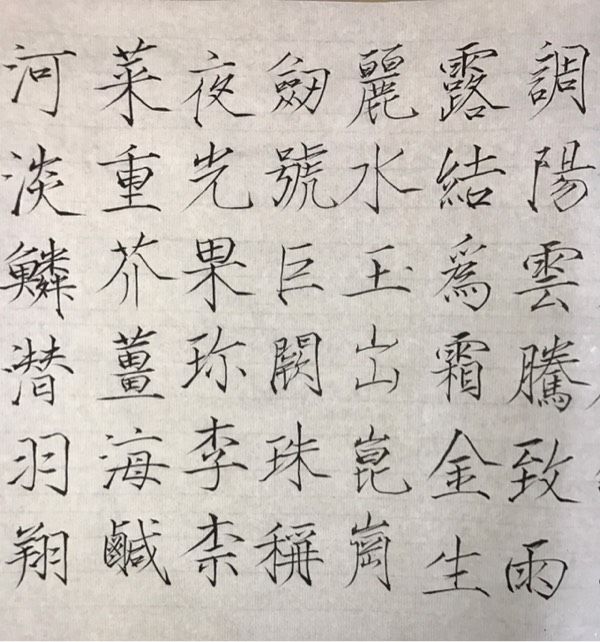 調陽雲騰致雨
露結爲霜金生
麗水玉出崑崗
劒號巨闕珠稱
夜光果珎李柰
菜重芥薑海鹹
河淡鱗潛羽翔